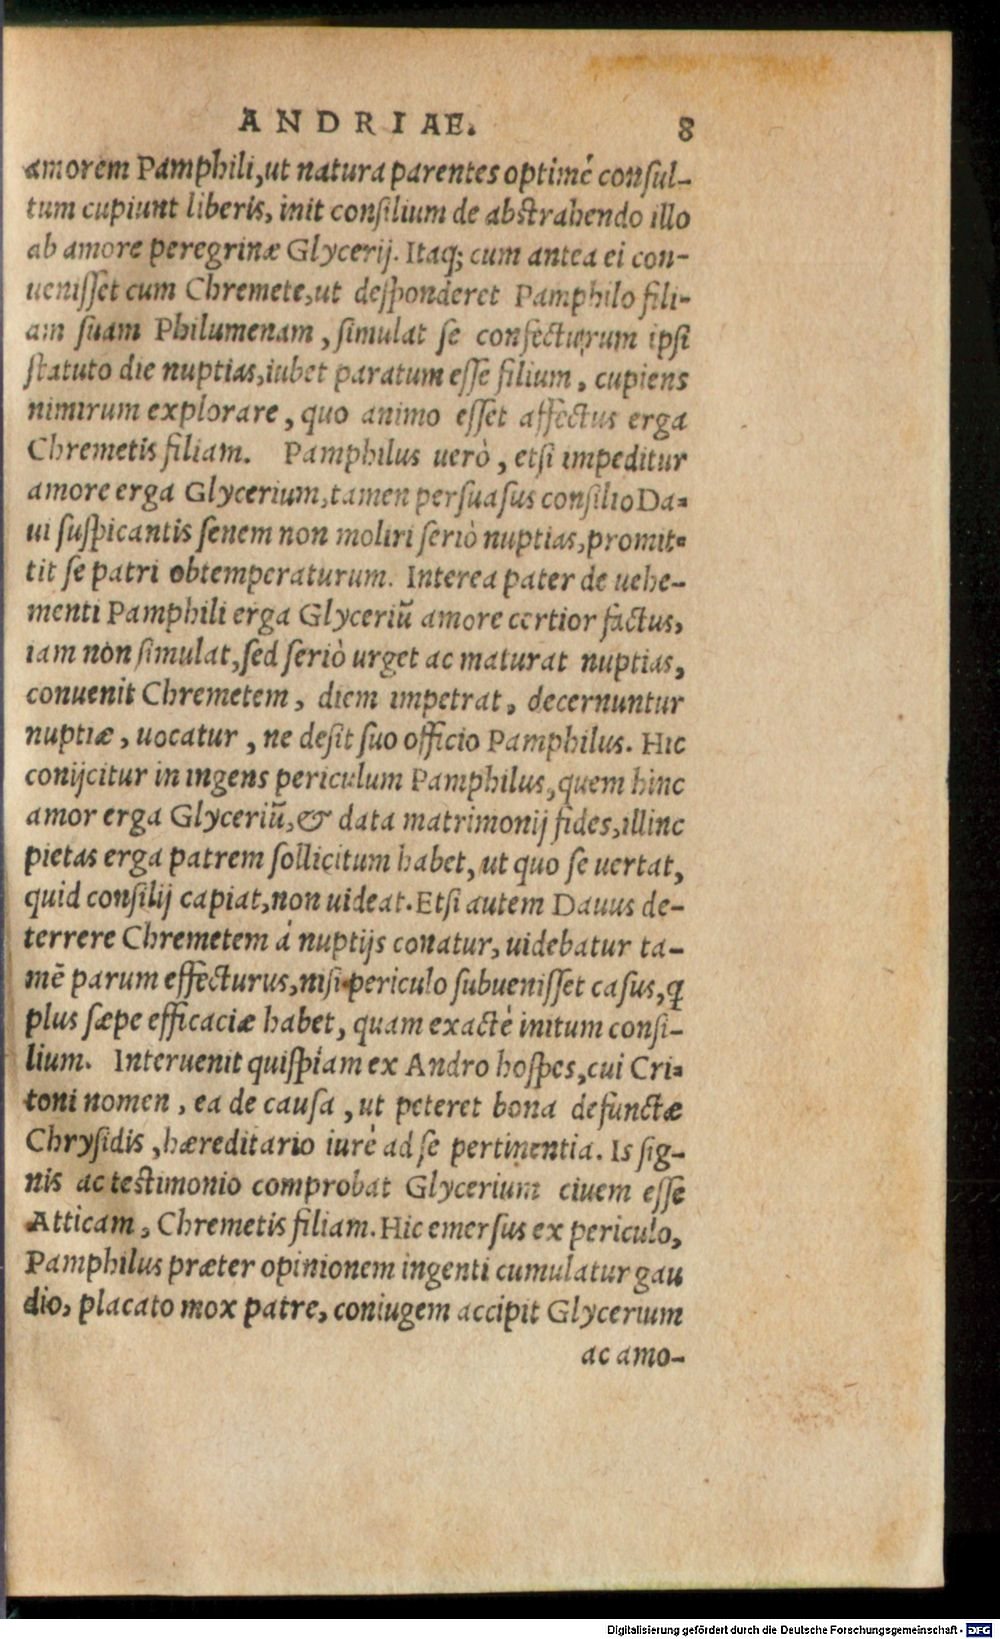 ANDRIAE. 8
amorem Pamphili, ut natura parentes optimè conſul-
tum cupiunt liberis, init conſilium de abſtrahendo illo
ab amore peregrinæ Glycerij. Itaq; cum antea ei con-
ueniſſet cum Chremete, ut deſponderet Pamphilo fili-
am ſuam Philumenam, ſimulat ſe confecturum ipſi
ſtatuto die nuptias, iubet paratum eſſe filium, cupiens
nimirum explorare, quo animo eſſet affectus erga
Chremetis filiam. Pamphilus uerò, etſi impeditur
amore erga Glycerium, tamen perſuaſus conſilio Da-
ui ſuſpicantis ſenem non moliri ſeriò nuptias, promit-
tit ſe patri obtemperaturum. Interea pater de uehe-
menti Pamphili erga Glyceriũ amore certior factus,
iam non ſimulat, ſed ſeriò urget ac maturat nuptias,
conuenit Chremetem, diem impetrat, decernuntur
nuptiæ, uocatur, ne deſit ſuo officio Pamphilus. Hic
conijcitur in ingens periculum Pamphilus, quem hinc
amor erga Glyceriũ, & data matrimonij fides, illinc
pietas erga patrem ſollicitum habet, ut quo ſe uertat,
quid conſilij capiat, non uideat. Etſi autem Dauus de-
terrere Chremetem à nuptijs conatur, uidebatur ta-
mẽ parum effecturus, niſi periculo ſubueniſſet caſus, ꝗ
plus ſæpe efficaciæ habet, quam exactè initum conſi-
lium. Interuenit quiſpiam ex Andro hoſpes, cui Cri-
toni nomen, ea de cauſa, ut peteret bona defunctæ
Chryſidis, hæreditario iurè ad ſe pertinentia. Is ſig-
nis ac teſtimonio comprobat Glycerium ciuem eſſe
Atticam, Chremetis filiam. Hic emerſus ex periculo,
Pamphilus præter opinionem ingenti cumulatur gau
dio, placato mox patre, coniugem accipit Glycerium
ac amo-
Digitalisierung gefördert durch die Deutsche Forschungsgemeinschaft - DFG